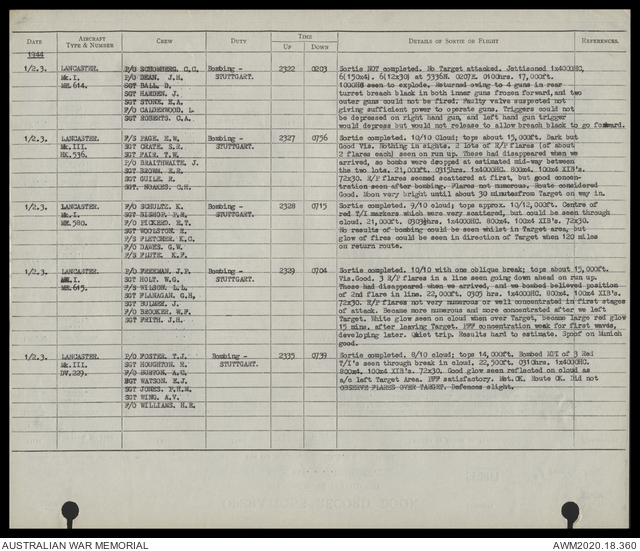 DATE AIRCRAFT TYPE & NUMBER CREW DUTY TIME UP DOWN DETAILS OF SORTIE OR FLIGHT REFERENCES.
1944
1/2.3. LANCASTER. P/O SCHOMBERG. C.C. Bombing - 2322 0203 Sortie NOT completed. No Target attacked. Jettisoned 1x4000HC,
Mk.I. P/O DEAN. J.H. STUTTGART. 6(150x4). 6(12x30) at 5336N. 0207E. 0100hrs. 17,000ft.
ME.614. SGT BALL. D. 1000HC seen to explode. Returned owing to 4 guns in rear
SGT HARDEN. J. turret breach black in both inner guns frozen forward, and two
SGT STONE. H.A. outer guns could not be fired. Faulty valve suspected not
P/O CALDERWOOD. L. giving sufficient power to operate guns. Triggers could not
SGT ROBERTS. C.A. be depressed on right hand gun, and left hand gun trigger
would depress but would not release to allow breach black to go forward.
1/2.3. LANCASTER. F/S PAGE. E.W. Bombing - 2327 0756 Sortie completed. 10/10 Cloud; tops about 15,000ft. Dark but
Mk.III SGT CRATE. S.R. STUTTGART. Good Vis. Nothing in sights. 2 lots of R/P flares (of about
HK.536. SGT FAIR. T.W. 2 flares each) seen on run up. These had disappeared when we
P/O BRAITHWAITE. J. arrived, so bombs were dropped at estimated mid-way between
SGT BROWN. E.R. the two lots. 21,000ft. 0315hrs. 1x4000HC. 800x4. 100x4 XIB's.
SGT GUILE. R. 72x30. R/P flares seemed scattered at first, but good concen-
SGT. NOAKES. C.H. tration seen after bombing. Flares not numerous. Route considered
Good. Moon very bright until about 30 minutesfrom Target on way in.
1/2.3. LANCASTER. P/O SCHULTZ. K. Bombing - 2328 0715 Sortie completed. 9/10 cloud; tops approx. 10/12,000ft. Centre of
Mk.I. SGT BISHOP. P.R. STUTTGART. red T/I markers which were very scattered, but could be seen through
ME.580. SGT PICKERD. E.T. cloud. 21,000ft. 0303½hrs. 1x4000HC. 800x4. 100x4 XIB's. 72x30.
SGT WOOLSTON. E. No results of bombing could be seen whilst in Target area, but
F/S FLETCHER. K.C. glow of fires could be seen in direction of Target when 120 miles
F/O DAWES. G.W. on return route.
F/S FLUTE. K.F.
1/2.3. LANCASTER. F/O FREEMAN. J.P. Bombing - 2329 0704 Sortie completed. 10/10 with one oblique break; tops about 15,000ft.
Mk.I. SGT HOLT. W.G. STUTTGART. Vis.Good. 3 R/P flares in a line seen going down ahead on run up.
ME.615. F/S WILSON. L.L. These had disappeared when we arrived, and we bombed believed position
SGT FLANAGAN. G.H. of 2nd flare in line. 22,000ft. 0305 hrs. 1x4000HC. 800x4. 100x4 XIB's.
SGT BULMER. J. 72x30. R/P flares not very numerous or well concentrated in first stages
F/O BROOKER. W.F. of attack. Became more numerous and more concentrated after we left
SGT FRITH. J.H. Target. White glow seen on cloud when over Target, became large red glow
15 mins. after leaving Target. PFF concentration weak for first waves,
developing later. Quiet trip. Results hard to estimate. Spoof on Munich
good.
1/2.3. LANCASTER P/O FOSTER. T.J. Bombing - 2335 0739 Sortie completed. 8/10 cloud; tops 14,000ft. Bombed MPI of 3 Red
Mk.III. SGT HOUGHTON. R. STUTTGART. T/I's seen through break in cloud. 22,500ft. 0310hrs. 1x4000HC.
DV.229. F/O BURTON. A.C. 800x4. 100x4 XIB's. 72x30. Good glow seen reflected on cloud as
SGT WATSON. E.J. a/c left Target Area. PFF satisfactory. Met.OK. Route OK. Did not
SGT JONES. F.H.M. OBSERVE FLARES OVER TARGET. Defences slight.
SGT WING. A.V.
P/O WILLIAMS. H.E.
AUSTRALIAN WAR MEMORIAL AWM2020.18.360